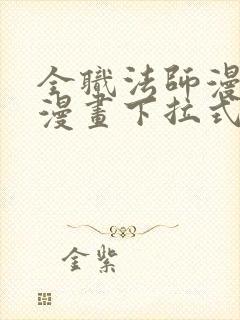 全職法師漫
漫畫下拉式
金紫